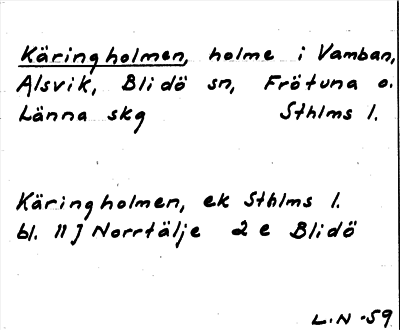 Käringholmen, holme i Vamban,
Alsvik, Blidö sn, Frötuna o.
Länna skg Sthlms l.
Käringholmen, ek Sthlms l.
bl. 11 J Norrtälje 2 e Blidö
L.N -59